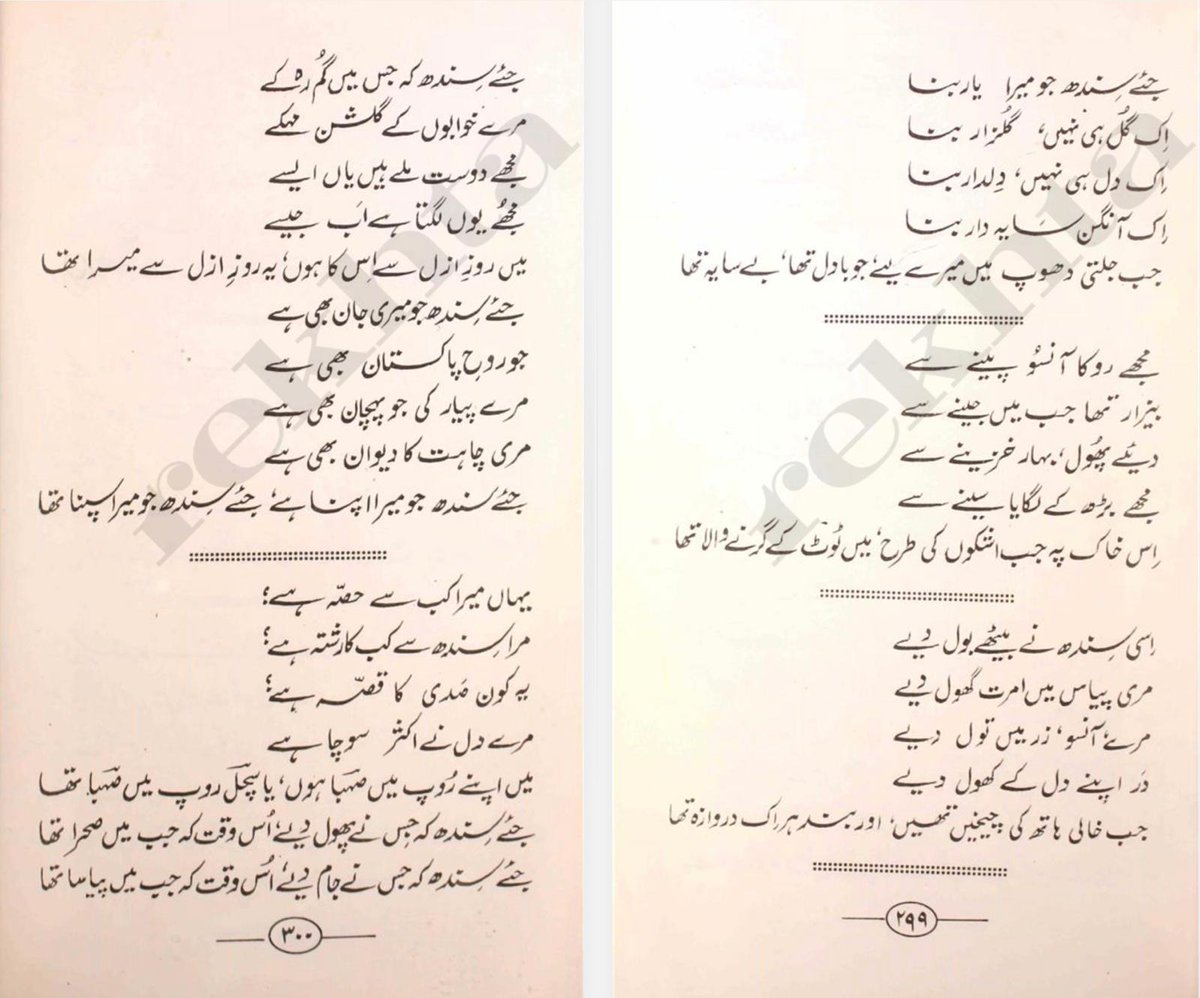 جئے سِندھ جو میرا یار بنا
اِک گُل ہی نہیں، گلزار بنا
اِک دل ہی نہیں، دِلدار بنا
اِک آنگن سَایہ دار بنا
جب جلتی دھوپ میں میرے لیے، جو بادل تھا، بے سایہ تھا
مجھے روکا آنسوُ پینے سے
بیزار تھا جب میں جینے سے
دیئے پھُول، بہار خزینے سے
مجھے بڑھ کے لگایا سینے سے
اِس خاک پہ جب اشکوں کی طرح، میں ٹوٹ کے گرنے والا تھا
اِسی سِندھ نے میٹھے بول دیے
مری پیاس میں امرت گھول دیے
مرے، آنسو، زر میں تول دیے
دَر اپنے دل کے کھول دیے
جب خالی ہاتھ کی چیخیں تھیں، اور بند ہر اک دروازہ تھا
۲۹۹
جئے سِندھ کہ جس میں گُم رہ کے
مرے خوابوں کے گلشن مہکے
مجھے دوست ملے ہیں یاں ایسے
مجھے یوں لگتا ہے اَب جیسے
میں روزِ ازل سے اِس کا ہوں، یہ روزِ ازل سے میرا تھا
جئے سِندھ جو میری جان بھی ہے
جو روحِ پاکستان بھی ہے
مرے پیار کی جو پہچان بھی ہے
مری چاہت کا دیوان بھی ہے
جئے سندھ جو میرا اپنا ہے، جئے سِندھ جو میرا سپنا تھا
یہاں میرا کب سے حصّہ ہے؟
مرا سِندھ سے کب کا رشتہ ہے؟
یہ کون صَدی کا قصّہ ہے؟
مرے دل نے اکثر سوچا ہے
میں اپنے رُوپ میں صَہبا ہوں، یا سچل روپ میں صَہبا تھا
جئے سِندھ کہ جس نے پھول دیے، اُس وقت کہ جب میں صحرا تھا
جئے سِندھ کہ جس نے جام دیے، اُس وقت کہ جب میں پیاسا تھا
۳۰۰
rekhta
rekhta